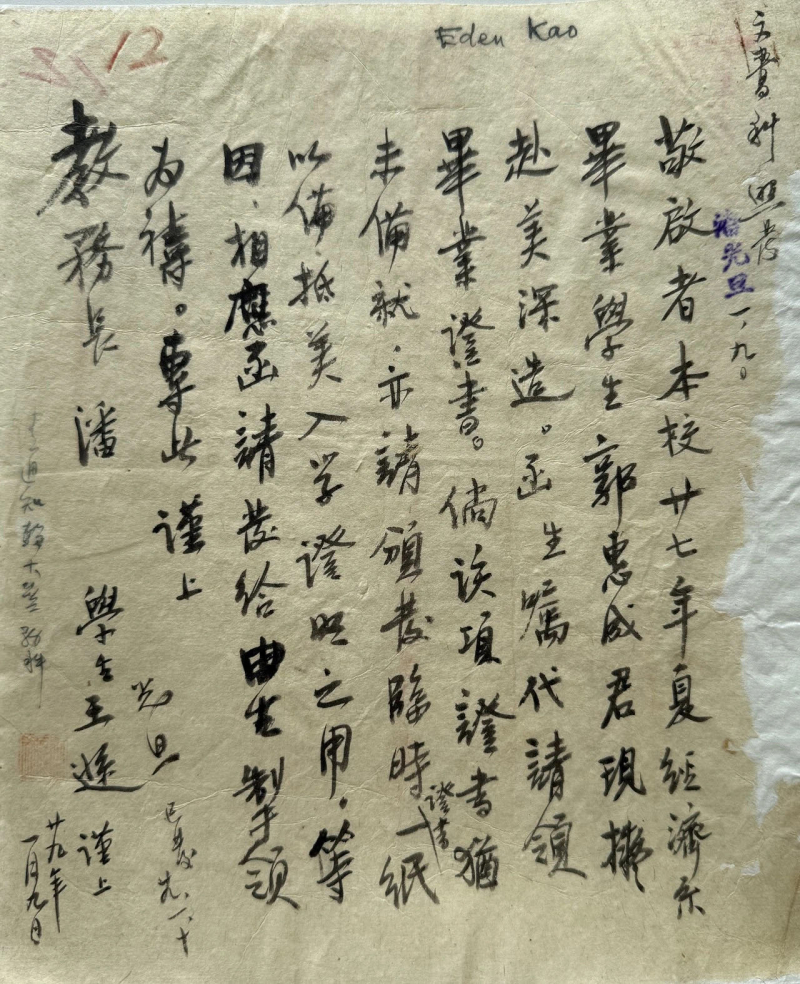 12
Eden Kao
文書科照發
潘光旦
一、九、
敬啟者本校廿七年夏經濟系
畢業學生郭惠成君現擬
赴美深造。函生囑代請領
畢業證書。倘該項證書猶
未備就、亦請頒發臨時證書一紙
以備抵美入學證明之用。等
因、相應函請發給由生製領
为禱。專此 謹上
教務長潘
光旦
學生王遜 謹上
廿九年
一月九日
已發 九、一、十